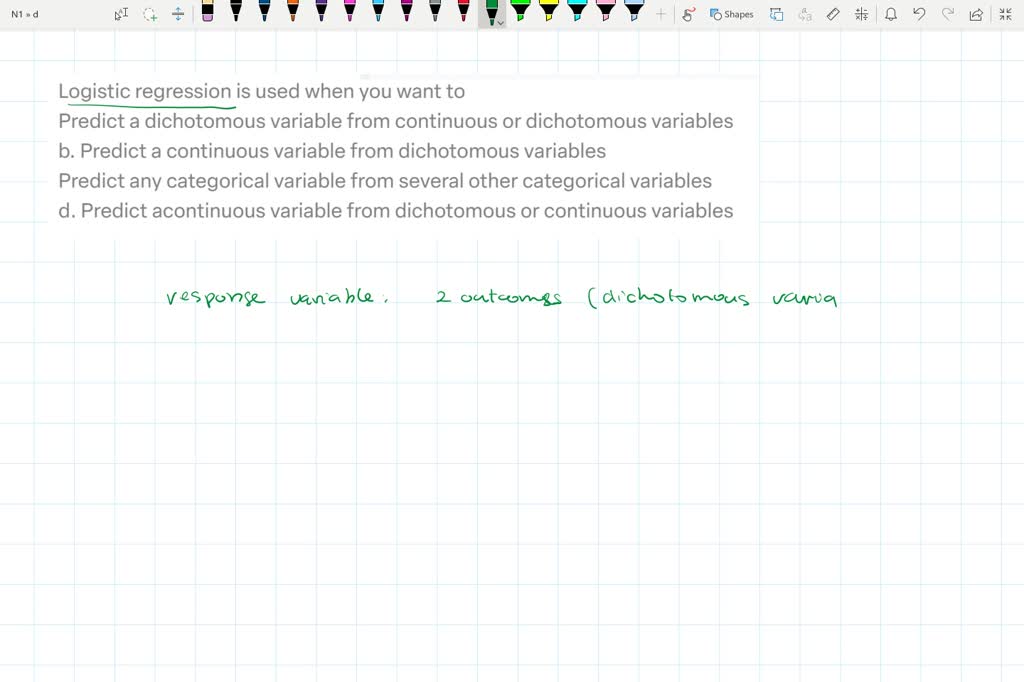 N1 » d
Shapes
Logistic regression is used when you want to
Predict a dichotomous variable from continuous or dichotomous variables
b. Predict a continuous variable from dichotomous variables
Predict any categorical variable from several other categorical variables
d. Predict acontinuous variable from dichotomous or continuous variables
response variable: 2 outcomes (dichotomous varia